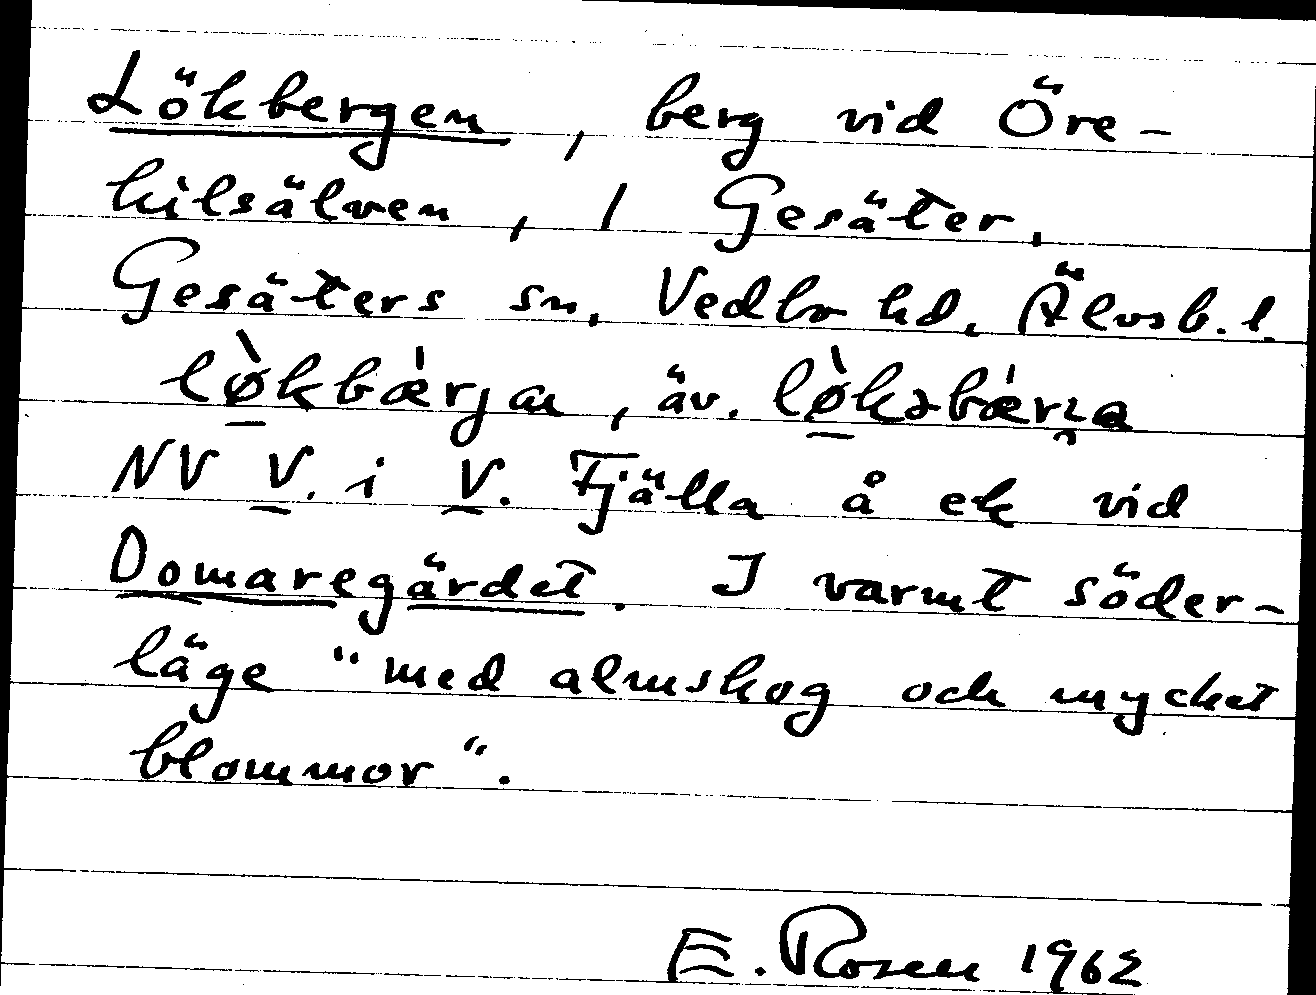 Lökbergen, berg vid Öre-
kilsälven, 1 Gesäter,
Gesäters sn, Vedbo hd, Älvsb. l.
lø̀kbæ̀rjan, äv. lø̀ksbæ̀rja
NV V. i V. Fjälla å ek vid
Domaregärdet. I varmt söder-
läge "med almskog och mycket
blommor".
E. Rosen 1962